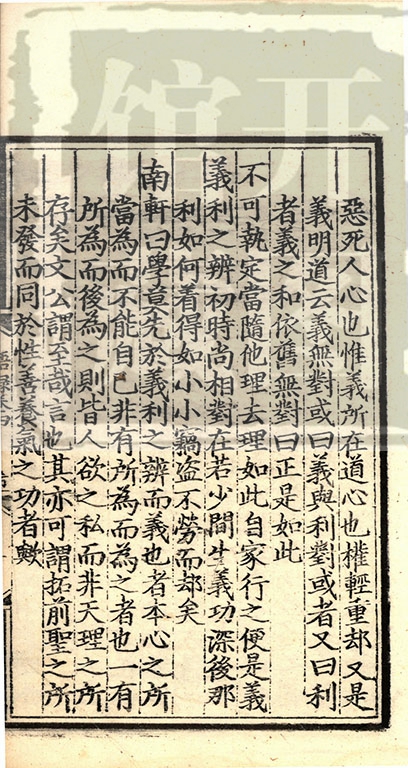 惡死人心也惟義所在道心也權輕重却又是
義明道云義無對或曰義與利對或者又曰利
者義之和依舊無對曰正是如此
不可執定當隨他理去理如此自家行之便是義
義利之辨初時尚相對在若少間生義功深後那
利如何着得如小小竊盗不勞而却矣
南軒曰學莫先於義利之辨而義也者本心之所
當為而不能自已非有所為而為之者也一有
所為而後為之則皆人欲之私而非天理之所
存矣文公謂至哉言也其亦可謂拓前聖之所
未發而同於性善養氣之功者歟